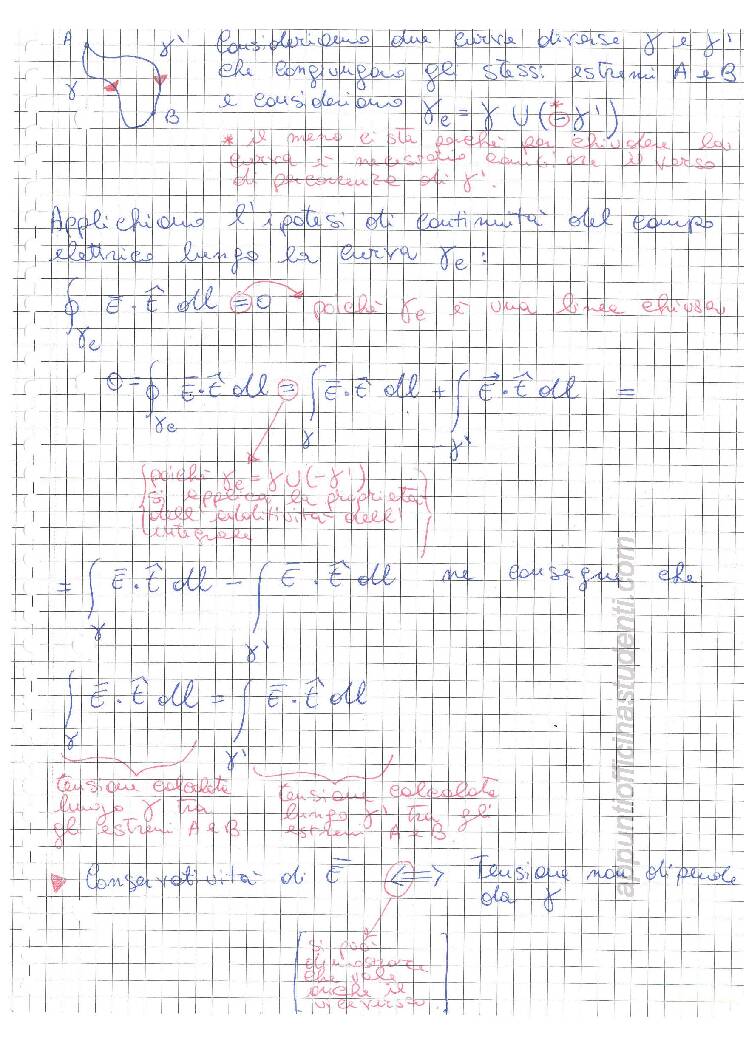 A
γ'
γ
B
Consideriamo due curve diverse γ e γ'
che congiungano gli stessi estremi A e B
e consideriamo γc = γ ∪ (-γ')
* il meno ci sta perché per chiudere la
curva è necessario cambiare il verso
di percorrenza di γ'.
Applichiamo l'ipotesi di continuità del campo
elettrico lungo la curva γc :
∮γc E̅ · t̂ dl = 0 poiché γc è una linea chiusa
0 = ∮γc E̅ · t̂ dl = ∫γ E̅ · t̂ dl + ∫-γ' E⃗ · t̂ dl =
poiché γc = γ ∪ (-γ')
si applica la proprietà
dell'additività dell'
integrale
= ∫γ E̅ · t̂ dl - ∫γ' E̅ · t̂ dl ne consegue che
∫γ E̅ · t̂ dl = ∫γ' E̅ · t̂ dl
tensione calcolata
lungo γ tra
gli estremi A e B
tensione calcolata
lungo γ' tra gli
estremi A e B.
Conservatività di E̅ <=> Tensione non dipende
da γ
si può
dimostrare
che vale
anche il
viceversa
appuntiofficinastudenti.com